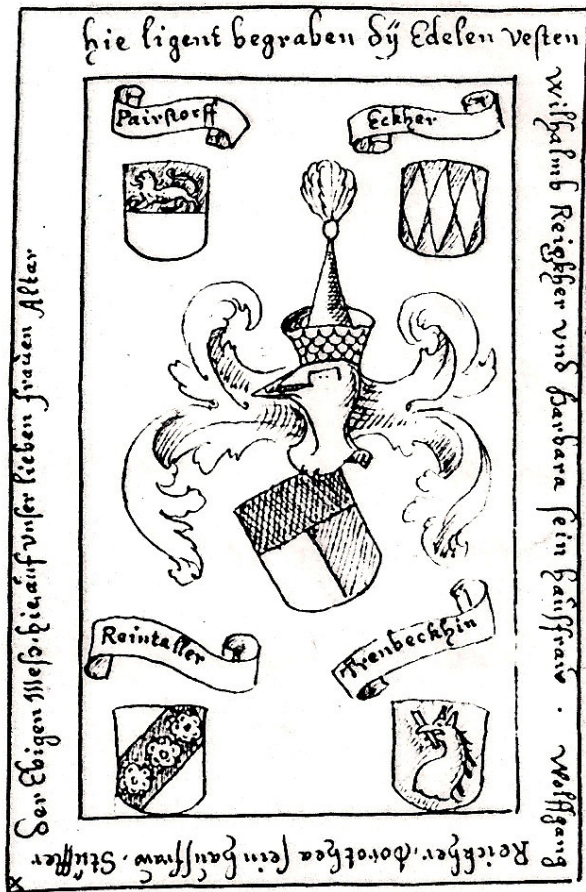 hie ligent begraben dÿ Edelen vesten
Wilhalmb Reigkher vnd Barbara sein haüsfraw . Wolffgang
Reickher. dorothea sein haüsfraw. Stüffter
der Ebigen Mess. hie. auf vnser lieben frauen Altar
Pairstorff
Eckher
Reintaller
Trenbeckhin